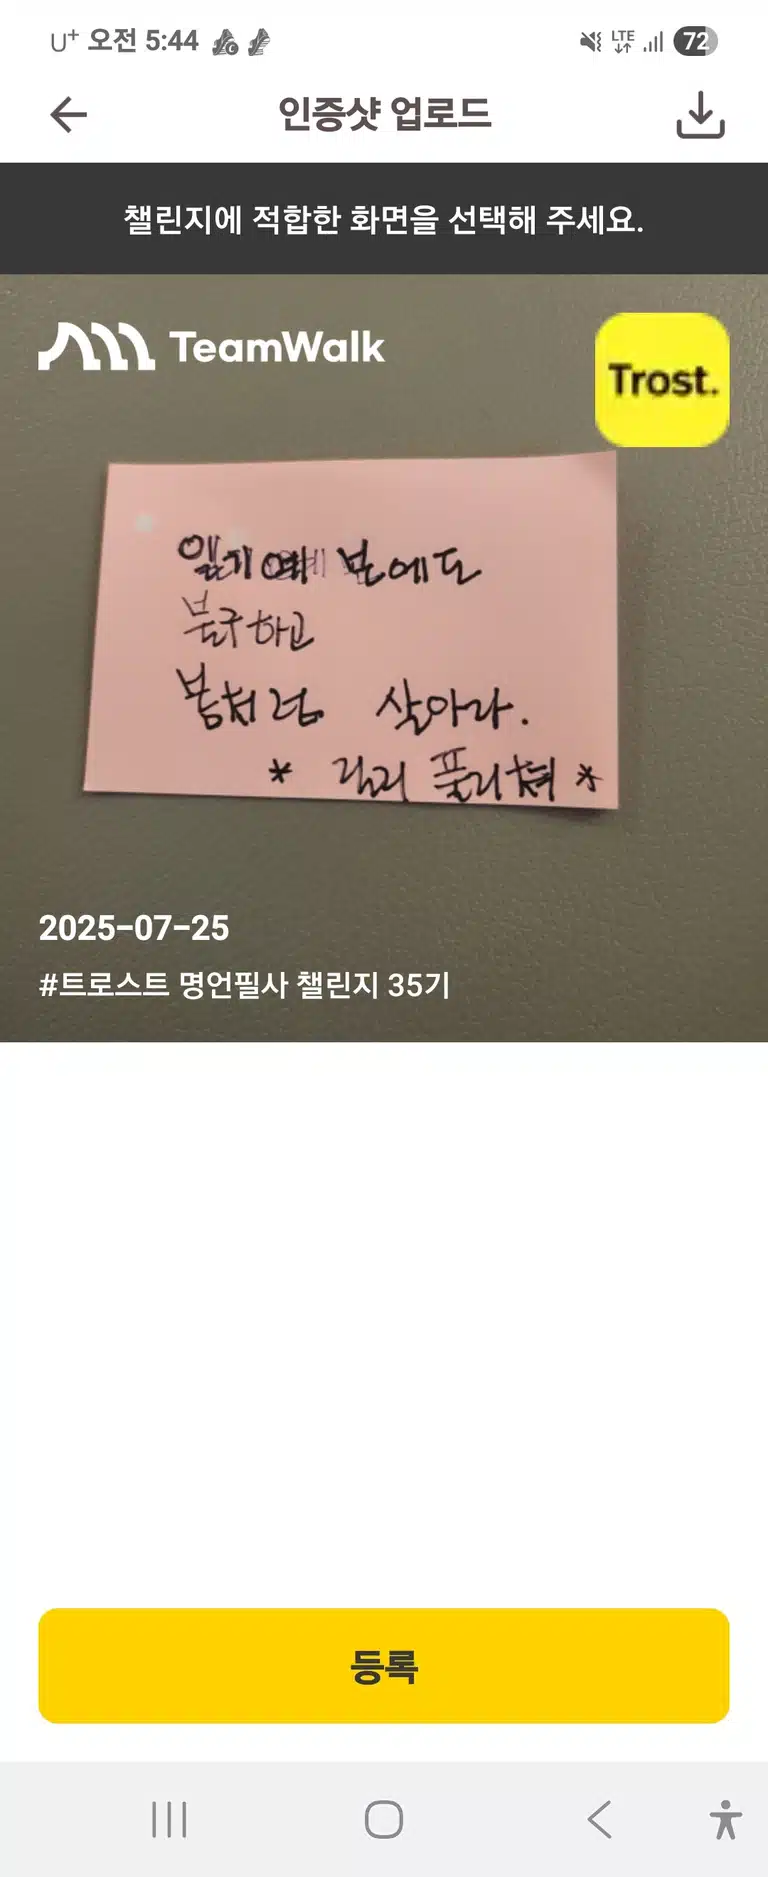 U+ 오전 5:44
LTE
72
인증샷 업로드
챌린지에 적합한 화면을 선택해 주세요.
TeamWalk
Trost.
일기예보에도
불구하고
봄처럼 살아라.
* 릴리 풀리쳐 *
2025-07-25
#트로스트 명언필사 챌린지 35기
등록